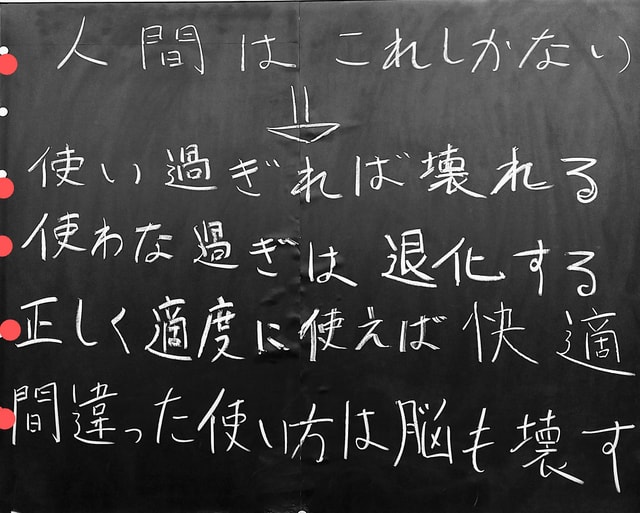 人間はこれしかない
⇓
使い過ぎれば壊れる
使わな過ぎは退化する
正しく適度に使えば快適
間違った使い方は脳も壊す